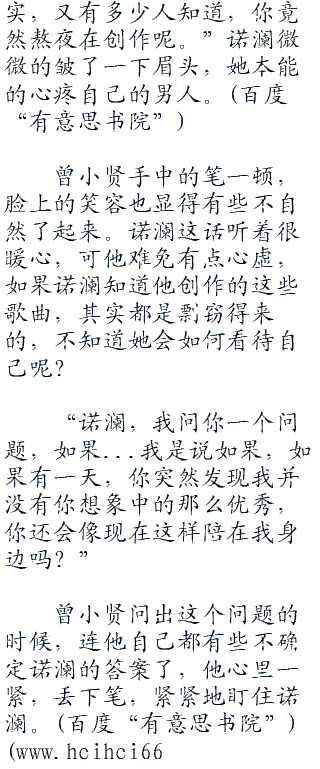 实，又有多少人知道，你竟
然熬夜在创作呢。”诺澜微
微的皱了一下眉头，她本能
的心疼自己的男人。(百度
“有意思书院”)
曾小贤手中的笔一顿，
脸上的笑容也显得有些不自
然了起来。诺澜这话听着很
暖心，可他难免有点心虚，
如果诺澜知道他创作的这些
歌曲，其实都是剽窃得来
的，不知道她会如何看待自
己呢？
“诺澜，我问你一个问
题，如果...我是说如果，如
果有一天，你突然发现我并
没有你想象中的那么优秀，
你还会像现在这样陪在我身
边吗？”
曾小贤问出这个问题的
时候，连他自己都有些不确
定诺澜的答案了，他心里一
紧，丢下笔，紧紧地盯住诺
澜。(百度“有意思书院”)
(www.hcihci66